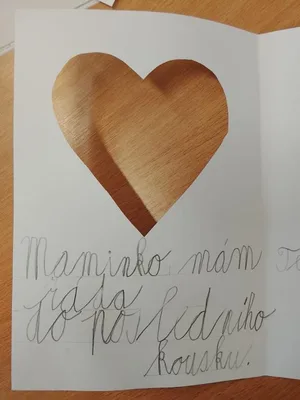 Maminko mám
ráda
do posledního
kousku.